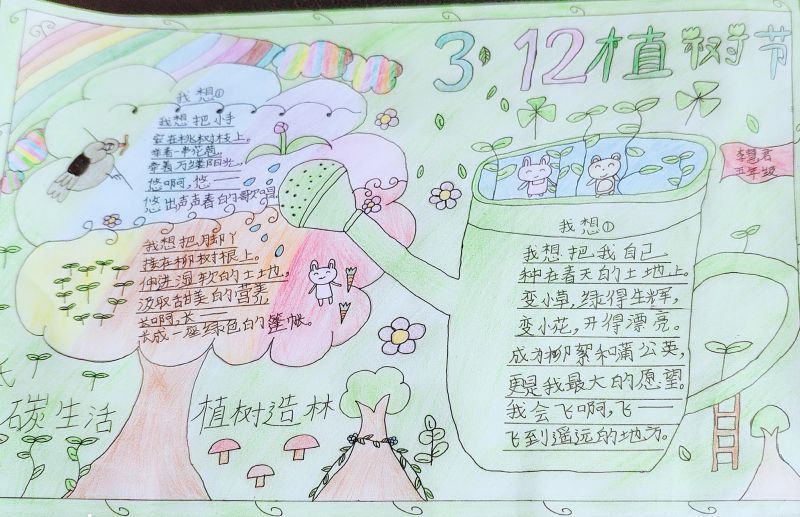 3.12植树节
李慧君
五年级
我想①
我想把小手
安在桃树枝上。
牵着一串花苞,
牵着万缕阳光,
悠啊,悠——
悠出声声春的歌唱。
我想把脚丫
接在柳树根上。
伸进湿软的土地,
汲取甜美的营养,
长啊,长——
长成一座绿色的篷帐。
我想①
我想把我自己
种在春天的土地上。
变小草,绿得生辉,
变小花,开得漂亮。
成为柳絮和蒲公英,
更是我最大的愿望。
我会飞啊,飞——
飞到遥远的地方。
碳生活
植树造林